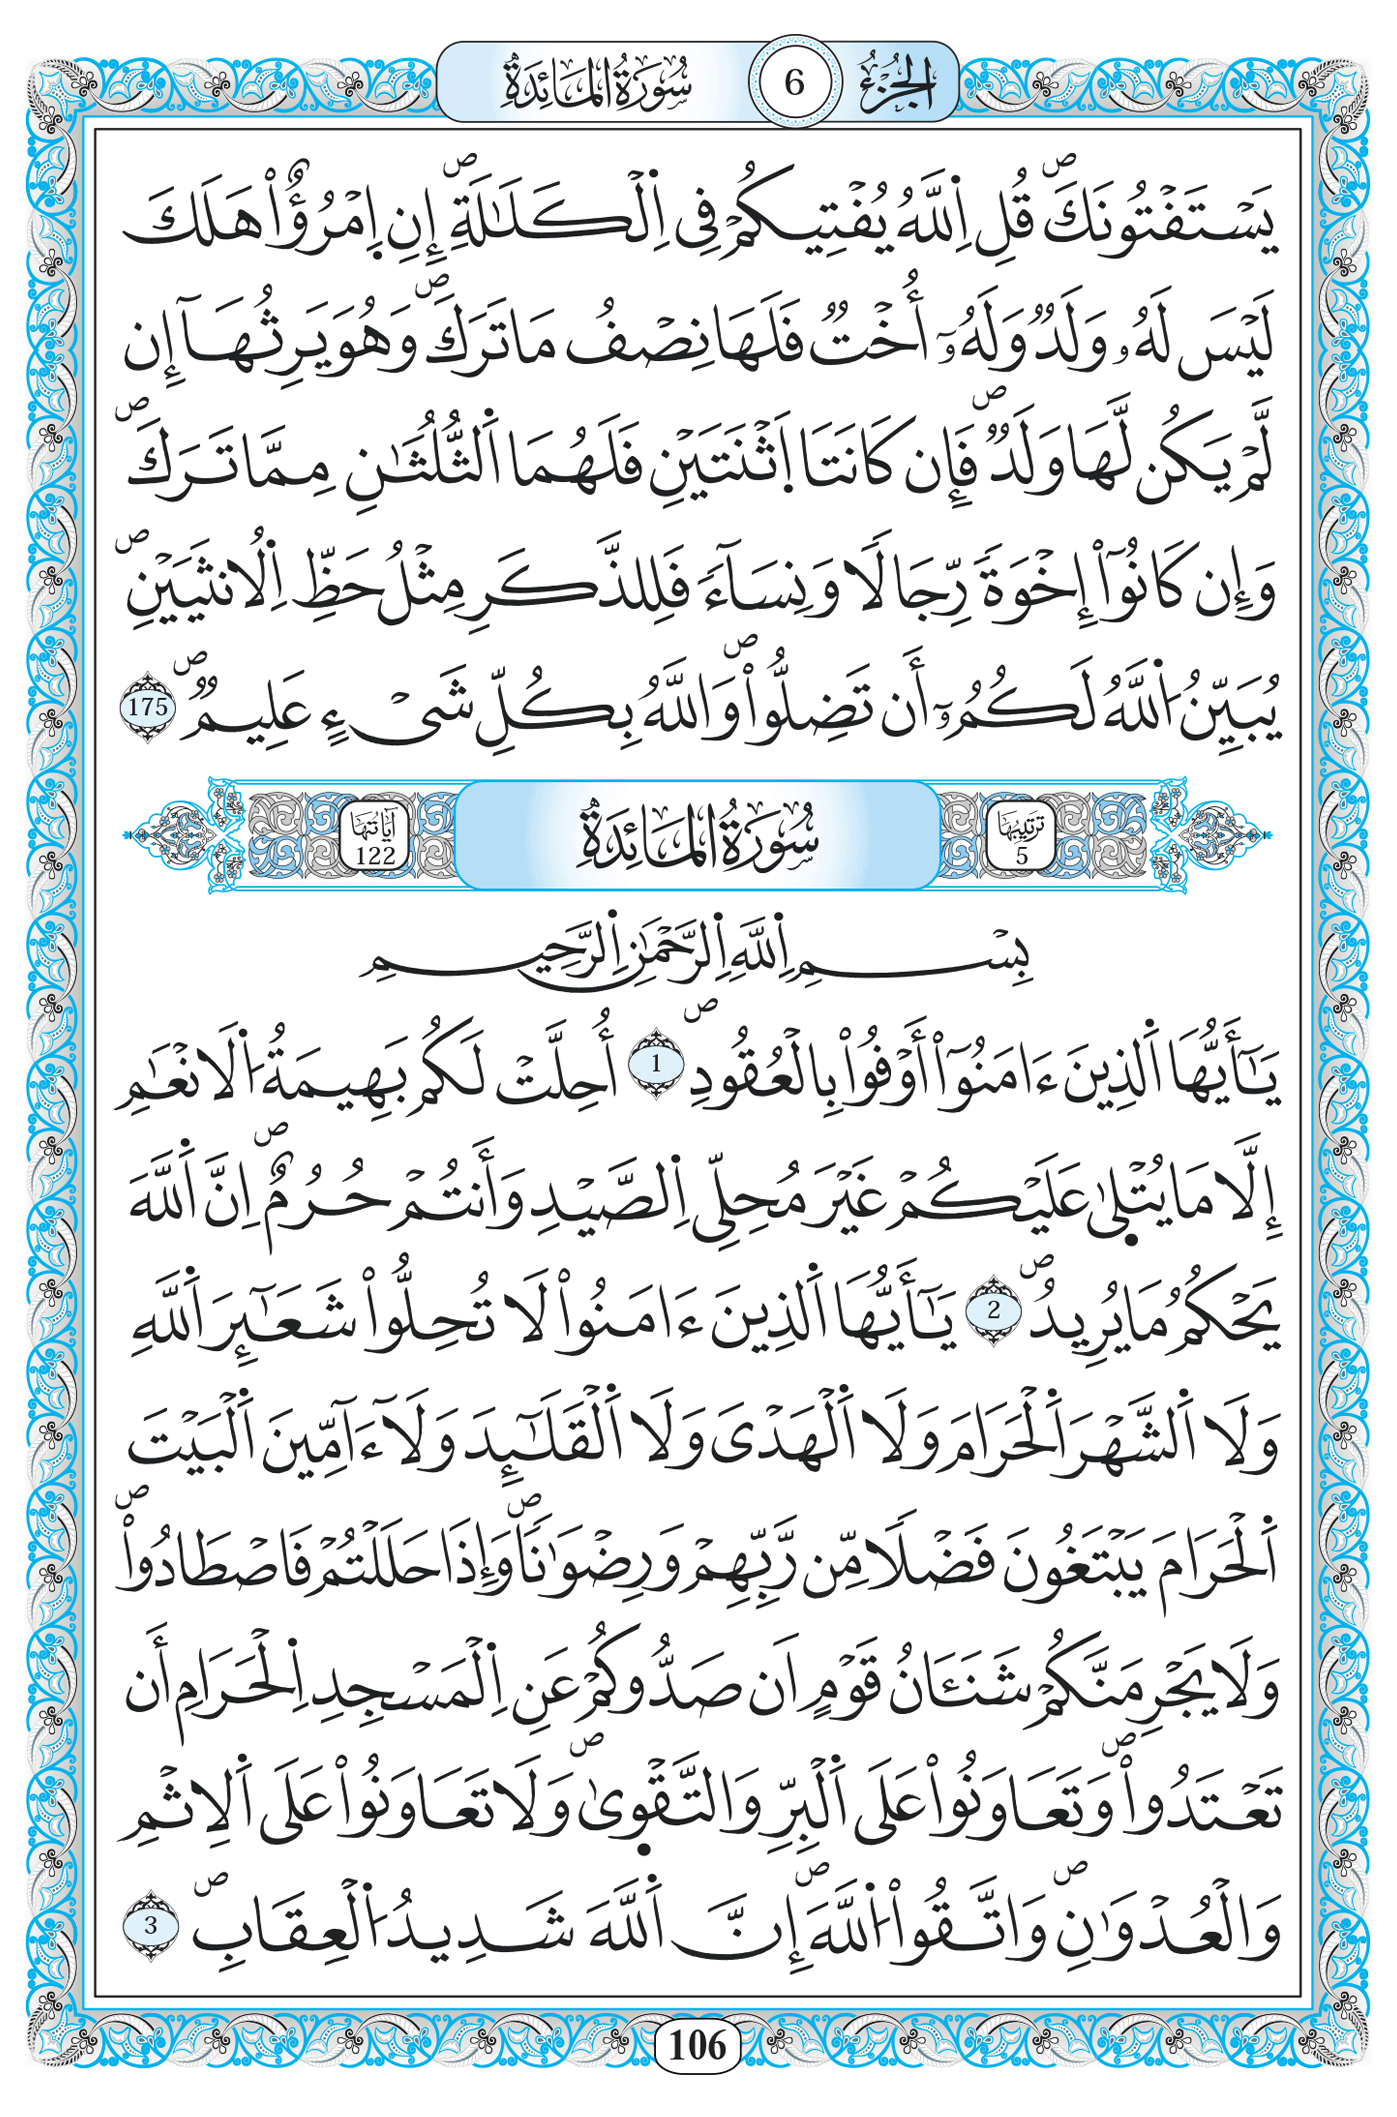 الجزء 6 سورة المائدة
يَسْتَفْتُونَكَۖ قُلِ اِ۬للَّهُ يُفْتِيكُمْ فِي اِ۬لْكَلَٰلَةِۖ إِنِ اِ۪مْرُؤٌاْ هَلَكَ
لَيْسَ لَهُۥ وَلَدٞ وَلَهُۥٓ أُخْتٞ فَلَهَا نِصْفُ مَا تَرَكَۖ وَهُوَ يَرِثُهَآ إِن
لَّمْ يَكُن لَّهَا وَلَدٞۖ فَإِن كَانَتَا اَ۪ثْنَتَيْنِ فَلَهُمَا اَ۬لثُّلُثَٰنِ مِمَّا تَرَكَۖ
وَإِن كَانُوٓاْ إِخْوَةٗ رِّجَالٗا وَنِسَآءٗ فَلِلذَّكَرِ مِثْلُ حَظِّ اِ۬لُانثَيَيْنِۖ
يُبَيِّنُ اُ۬للَّهُ لَكُمُۥٓ أَن تَضِلُّواْۖ وَاللَّهُ بِكُلِّ شَےْءٍ عَلِيمٞۖ 175
ترتيبها 5 سورة المائدة آياتها 122
بِسْمِ اِ۬للَّهِ اِ۬لرَّحْمَٰنِ اِ۬لرَّحِيمِ
يَٰٓأَيُّهَا اَ۬لذِينَ ءَامَنُوٓاْ أَوْفُواْ بِالْعُقُودِۖ 1 أُحِلَّتْ لَكُم بَهِيمَةُ اُ۬لَانْعَٰمِ
إِلَّا مَا يُتْل۪يٰ عَلَيْكُمْ غَيْرَ مُحِلِّي اِ۬لصَّيْدِ وَأَنتُمْ حُرُمٌۖ اِنَّ اَ۬للَّهَ
يَحْكُمُ مَا يُرِيدُۖ 2 يَٰٓأَيُّهَا اَ۬لذِينَ ءَامَنُواْ لَا تُحِلُّواْ شَعَٰٓئِرَ اَ۬للَّهِ
وَلَا اَ۬لشَّهْرَ اَ۬لْحَرَامَ وَلَا اَ۬لْهَدْيَ وَلَا اَ۬لْقَلَٰٓئِدَ وَلَآ ءَآمِّينَ اَ۬لْبَيْتَ
اَ۬لْحَرَامَ يَبْتَغُونَ فَضْلٗا مِّن رَّبِّهِمْ وَرِضْوَٰنٗاۖ وَإِذَا حَلَلْتُمْ فَاصْطَادُواْۖ
وَلَا يَجْرِمَنَّكُمْ شَنَـَٔانُ قَوْمٍ اَن صَدُّوكُمْ عَنِ اِ۬لْمَسْجِدِ اِ۬لْحَرَامِ أَن
تَعْتَدُواْۖ وَتَعَاوَنُواْ عَلَى اَ۬لْبِرِّ وَالتَّقْو۪يٰۖ وَلَا تَعَاوَنُواْ عَلَى اَ۬لِاثْمِ
وَالْعُدْوَٰنِۖ وَاتَّقُواْ اُ۬للَّهَۖ إِنَّ اَ۬للَّهَ شَدِيدُ اُ۬لْعِقَابِۖ 3
106